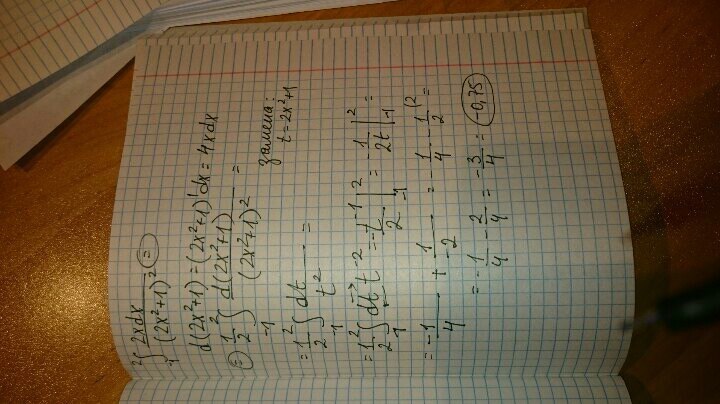 ²∫₋₁ 2xdx/(2x²+1)² =
d(2x²+1) = (2x²+1)'dx = 4xdx
= 1/2 ²∫₋₁ d(2x²+1)/(2x²+1)² =
замена:
t = 2x²+1
= 1/2 ²∫₋₁ dt/t² =
= 1/2 ²∫₋₁ dt t⁻² = -t⁻¹/2 |²₋₁ = -1/2t |²₋₁ =
= -1/4 + 1/-2 = -1/4 - 1/2 (² =
= -1/4 - 2/4 = -3/4 = -0,75